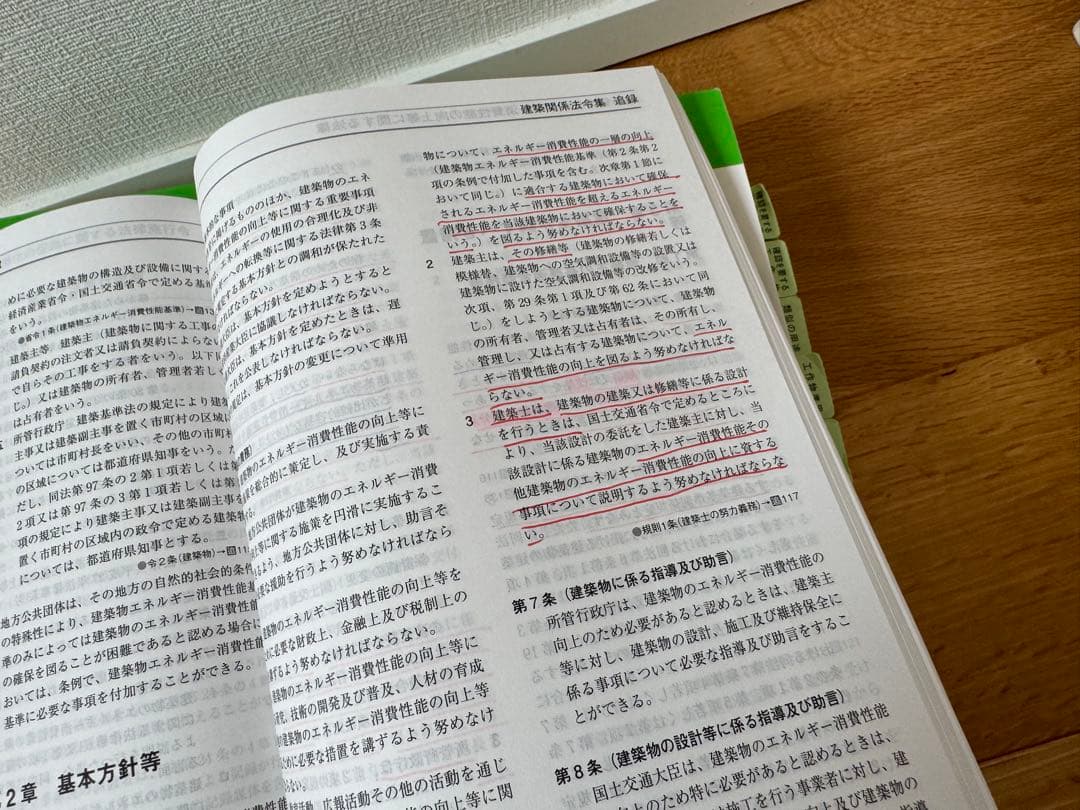 めに必要な建築物の構造及び設備に関す
経済産業省令・国土交通省令で定める基準
をいう。
●省令1条(建築物エネルギー消費性能基準)→
建築主等 建築主(建築物に関する工事の
請負契約の注文者又は請負契約によらない
で自らその工事をする者をいう。以下
じ。)又は建築物の所有者、管理者若しく
は占有者をいう。
所管行政庁 建築基準法の規定により建築
主事又は建築副主事を置く市町村の区域に
ついては市町村長をいい、その他の市町村
の区域については都道府県知事をいう。
だし、同法第97条の2第1項若しくは第
2項又は第97条の3第1項若しくは第
項の規定により建築主事又は建築副主事を
置く市町村の区域内の政令で定める建築
については、都道府県知事とする。
●令2条(建築物)→
地方公共団体は、その地方の自然的社会的条件
の特殊性により、建築物エネルギー消費性能基
準のみによっては建築物のエネルギー消費性能
の確保を図ることが困難であると認める場合
おいては、条例で、建築物エネルギー消費性能
基準に必要な事項を付加することができる。
2章 基本方針等
な事項
げるもののほか、建築物のエネ
性能の向上等に関する重要事項
ネルギーの使用の合理化及び非
への転換等に関する法律第3条
する基本方針との調和が保たれた
ならない。
は、基本方針を定めようとすると
大臣に協議しなければならない。
は、基本方針を定めたときは、遅
れを公表しなければならない。
定は、基本方針の変更について準用
物のエネルギー消費性能の向上等に
を総合的に策定し、及び実施する責
公共団体が建築物のエネルギー消費
等に関する施策を円滑に実施するこ
よう、地方公共団体に対し、助言そ
要な援助を行うよう努めなければなら
物のエネルギー消費性能の向上等を
に必要な財政上、金融上及び税制上の
するよう努めなければならない。
築物のエネルギー消費性能の向上等に
研究、技術の開発及び普及、人材の育成
の建築物のエネルギー消費性能の向上等
めに必要な措置を講ずるよう努めなけ
広報活動その他の活動を通じ
ネルギー消費性能の向上等に関
建築関係法令集 追録
物について、エネルギー消費性能の一層の向上
(建築物エネルギー消費性能基準(第2条第2
項の条例で付加した事項を含む。次章第1節に
おいて同じ。)に適合する建築物において確保
されるエネルギー消費性能を超えるエネルギー
消費性能を当該建築物において確保することを
いう。)を図るよう努めなければならない。
2 建築主は、その修繕等(建築物の修繕若しくは
模様替、建築物への空気調和設備等の設置又は
建築物に設けた空気調和設備等の改修をいう。
次項、第29条第1項及び第62条において同
じ。)をしようとする建築物について、建築物
の所有者、管理者又は占有者は、その所有し、
管理し、又は占有する建築物について、エネル
ギー消費性能の向上を図るよう努めなければな
らない。
3 建築士は、建築物の建築又は修繕等に係る設計
を行うときは、国土交通省令で定めるところに
より、当該設計の委託をした建築主に対し、当
該設計に係る建築物のエネルギー消費性能その
他建築物のエネルギー消費性能の向上に資する
事項について説明するよう努めなければならな
い。
●規則1条(建築士の努力義務)→図117
第7条(建築物に係る指導及び助言)
所管行政庁は、建築物のエネルギー消費性能の
向上のため必要があると認めるときは、建築主
等に対し、建築物の設計、施工及び維持保全に
係る事項について必要な指導及び助言をするこ
とができる。
第8条(建築物の設計等に係る指導及び助言)
国土交通大臣は、建築物のエネルギー消費性能
の向上のため特に必要があると認めるときは、